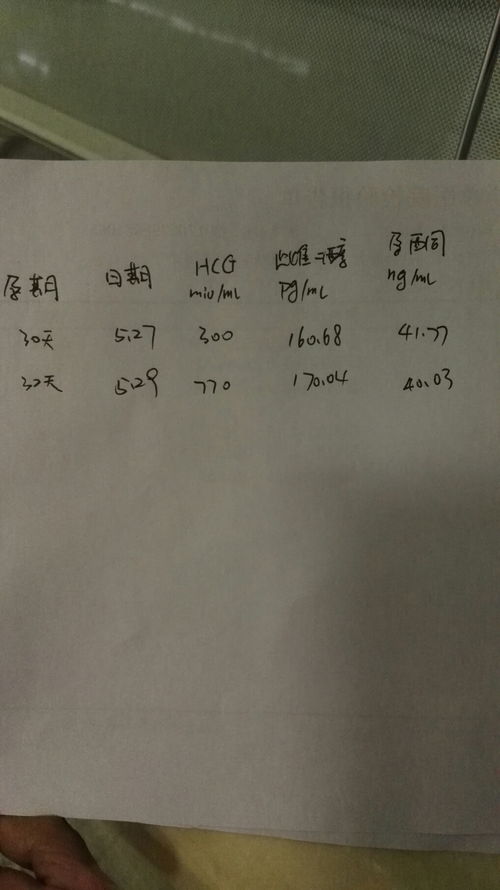 孕期 日期 HCG 雌二醇 孕酮
miu/ml pg/ml ng/ml
30天 5.27 300 160.68 41.77
32天 5.29 770 170.04 40.03